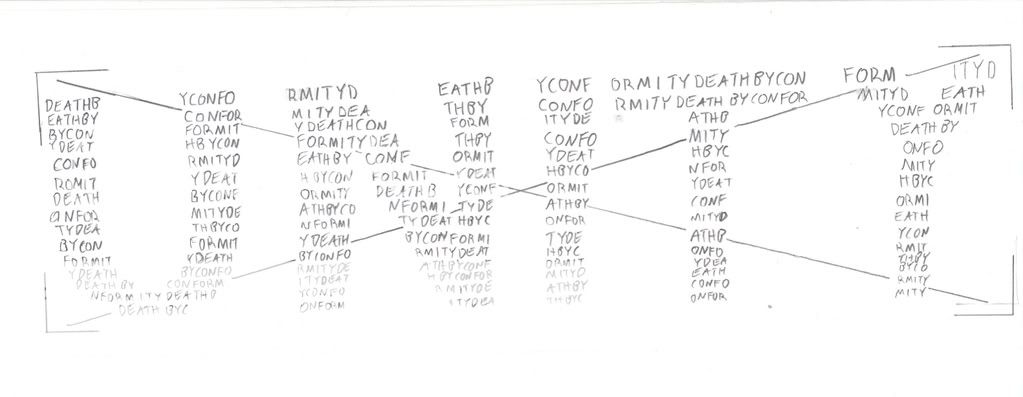 DEATHB YCONFO RMITYD EATHB YCONF ORMITYDEATHBYCON FORM ITYD
EATHBY CONFOR MITYDEA THBY CONFO RMITYDEATHBYCONFOR MITYD EATH
BYCON FORMIT YDEATHCON FORM ITYDE ATHB YCONF ORMIT
YDEAT HBYCON FORMITYDEA THBY CONFO MITY DEATHBY
CONFO RMITYD EATHBY CONF ORMIT YDEAT HBYC ONFO
ROMIT YDEAT HBYCON FORMIT YDEAT HBYCO NFOR MITY
DEATH BYCONF ORMITY DEATHB YCONF ORMIT YDEAT HBYC
ONFOR MITYDE ATHBYCO NFORMI TYDE ATHBY CONF ORMI
TYDEA THBYCO NFORMI TYDEATHBYC ONFOR MITYD EATH
BYCON FORMIT YDEATH BYCONFORMI TYDE ATHB YCON
FORMIT YDEATH BYCONFO RMITYDEAT HBYC ONFO RMIT
YDEATH BYCONFO RMITYDE ATHBYCONF ORMIT YDEA THBY
DEATHBY CONFORM ITYDEAT HBYCONFOR MITYD EATH BYCO
NFORMITYDEATHB YCONFO RMITYDE ATHBY CONFO RMITY
DEATHBYC ONFORM ITYDEA THBYC ONFOR MITY